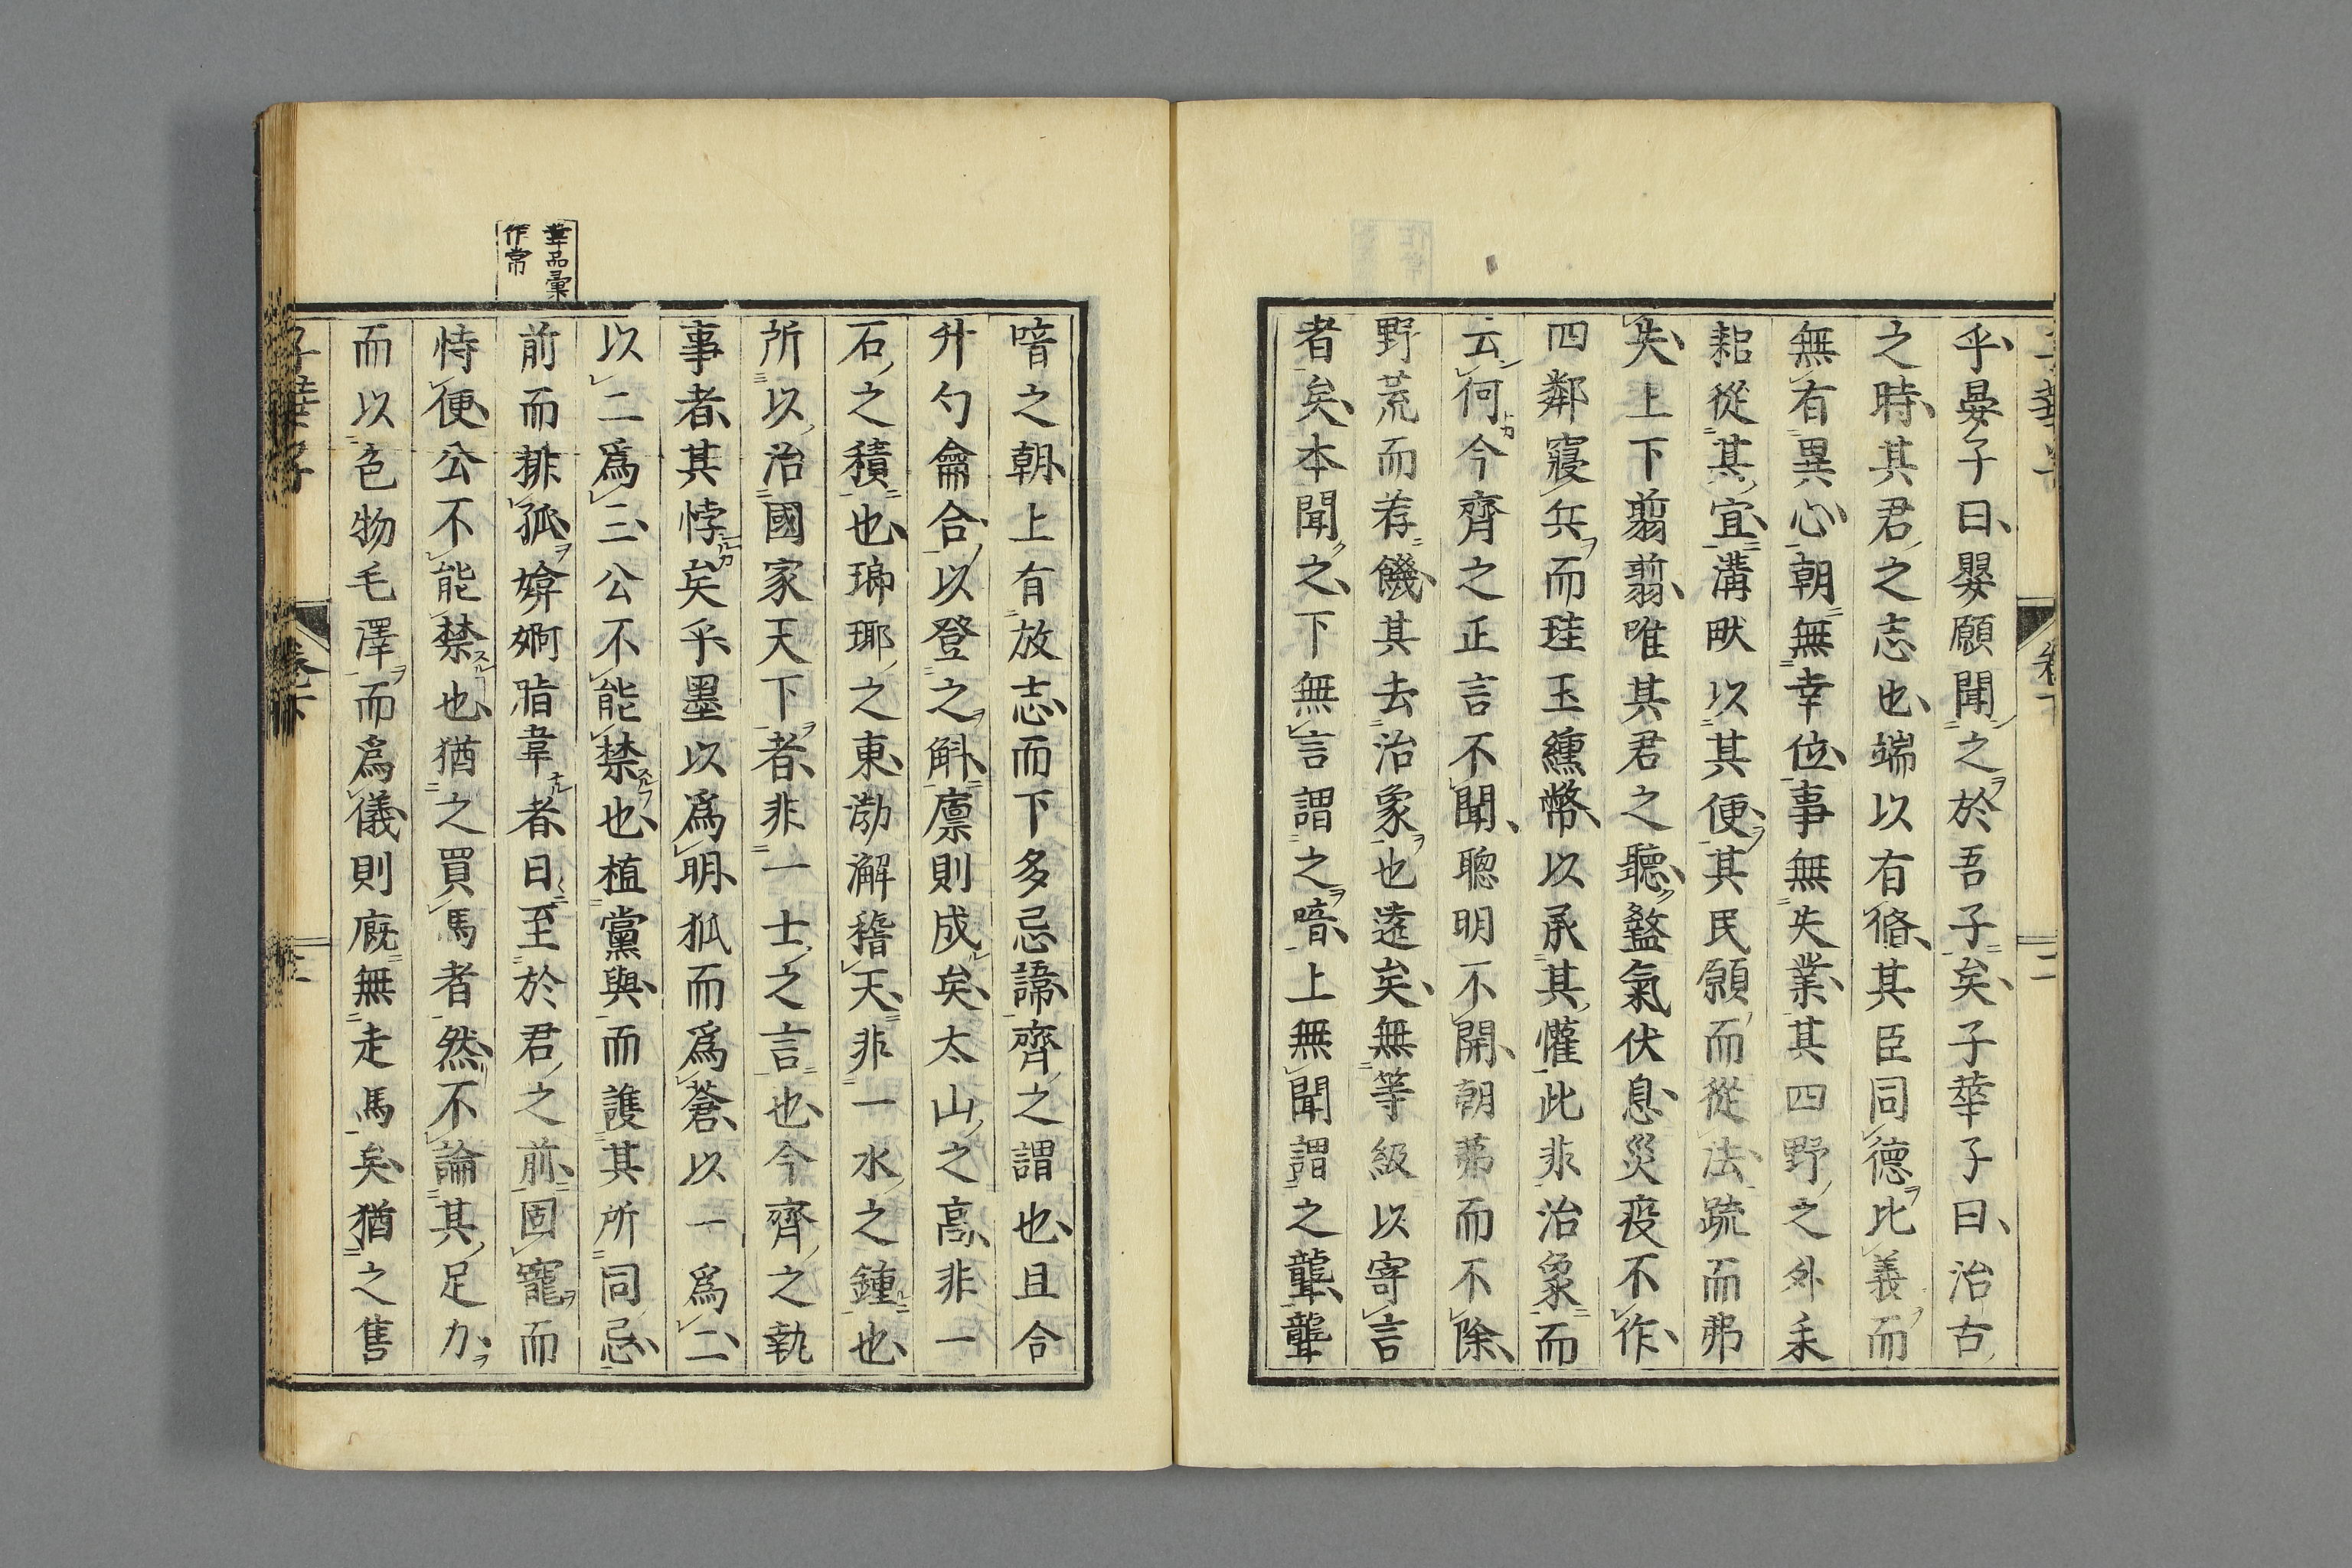 乎晏子曰嬰願聞之於吾子矣子華子曰治古
之時其君之志也端以有脩其臣同德比義而
無有異心朝無幸位事無失業其四野之外耒
耜從其宜溝畎以其便其民願而從法疏而弗
失上下翦翦唯其君之聽盭氣伏息災疫不作
四鄰寢兵而珪玉纁幣以承其懽此非治象而
云何今齊之正言不聞聰明不開朝茀而不除
野荒而荐饑其去治象也遠矣無等級以寄言
者矣本聞之下無言謂之喑上無聞謂之聾聾
喑之朝上有放志而下多忌諱齊之謂也且合
升勺龠合以登之斛廩則成矣太山之高非一
石之積也瑯琊之東渤澥稽天非一水之鍾也
所以治國家天下者非一士之言也今齊之執
事者其悖矣乎墨以爲明狐而爲蒼以一爲二
以二爲三公不能禁也植黨與而護其所同忌
前而排孤婞婀脂韋者日至於君之前固寵而
恃便公不能禁也猶之買馬者然不論其足力
而以色物毛澤而爲儀則廄無走馬矣猶之售
韋品彙
作常
子華子
卷下
二